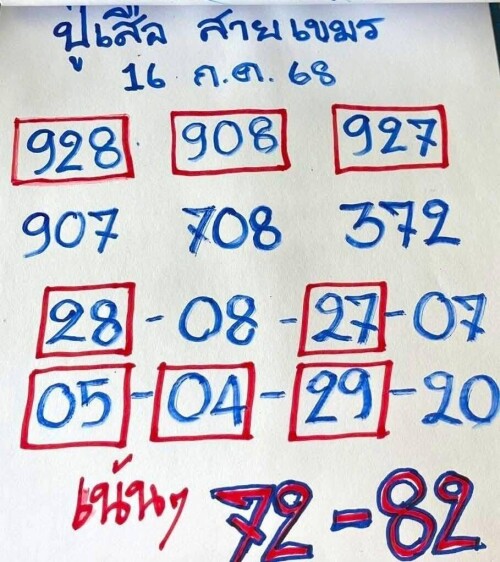 ปู่เสือ สายเขมร
16 ก.ค. 68
928 908 927
907 708 372
28 - 08 - 27 - 07
05 - 04 - 29 - 20
เน้นๆ 72 - 82